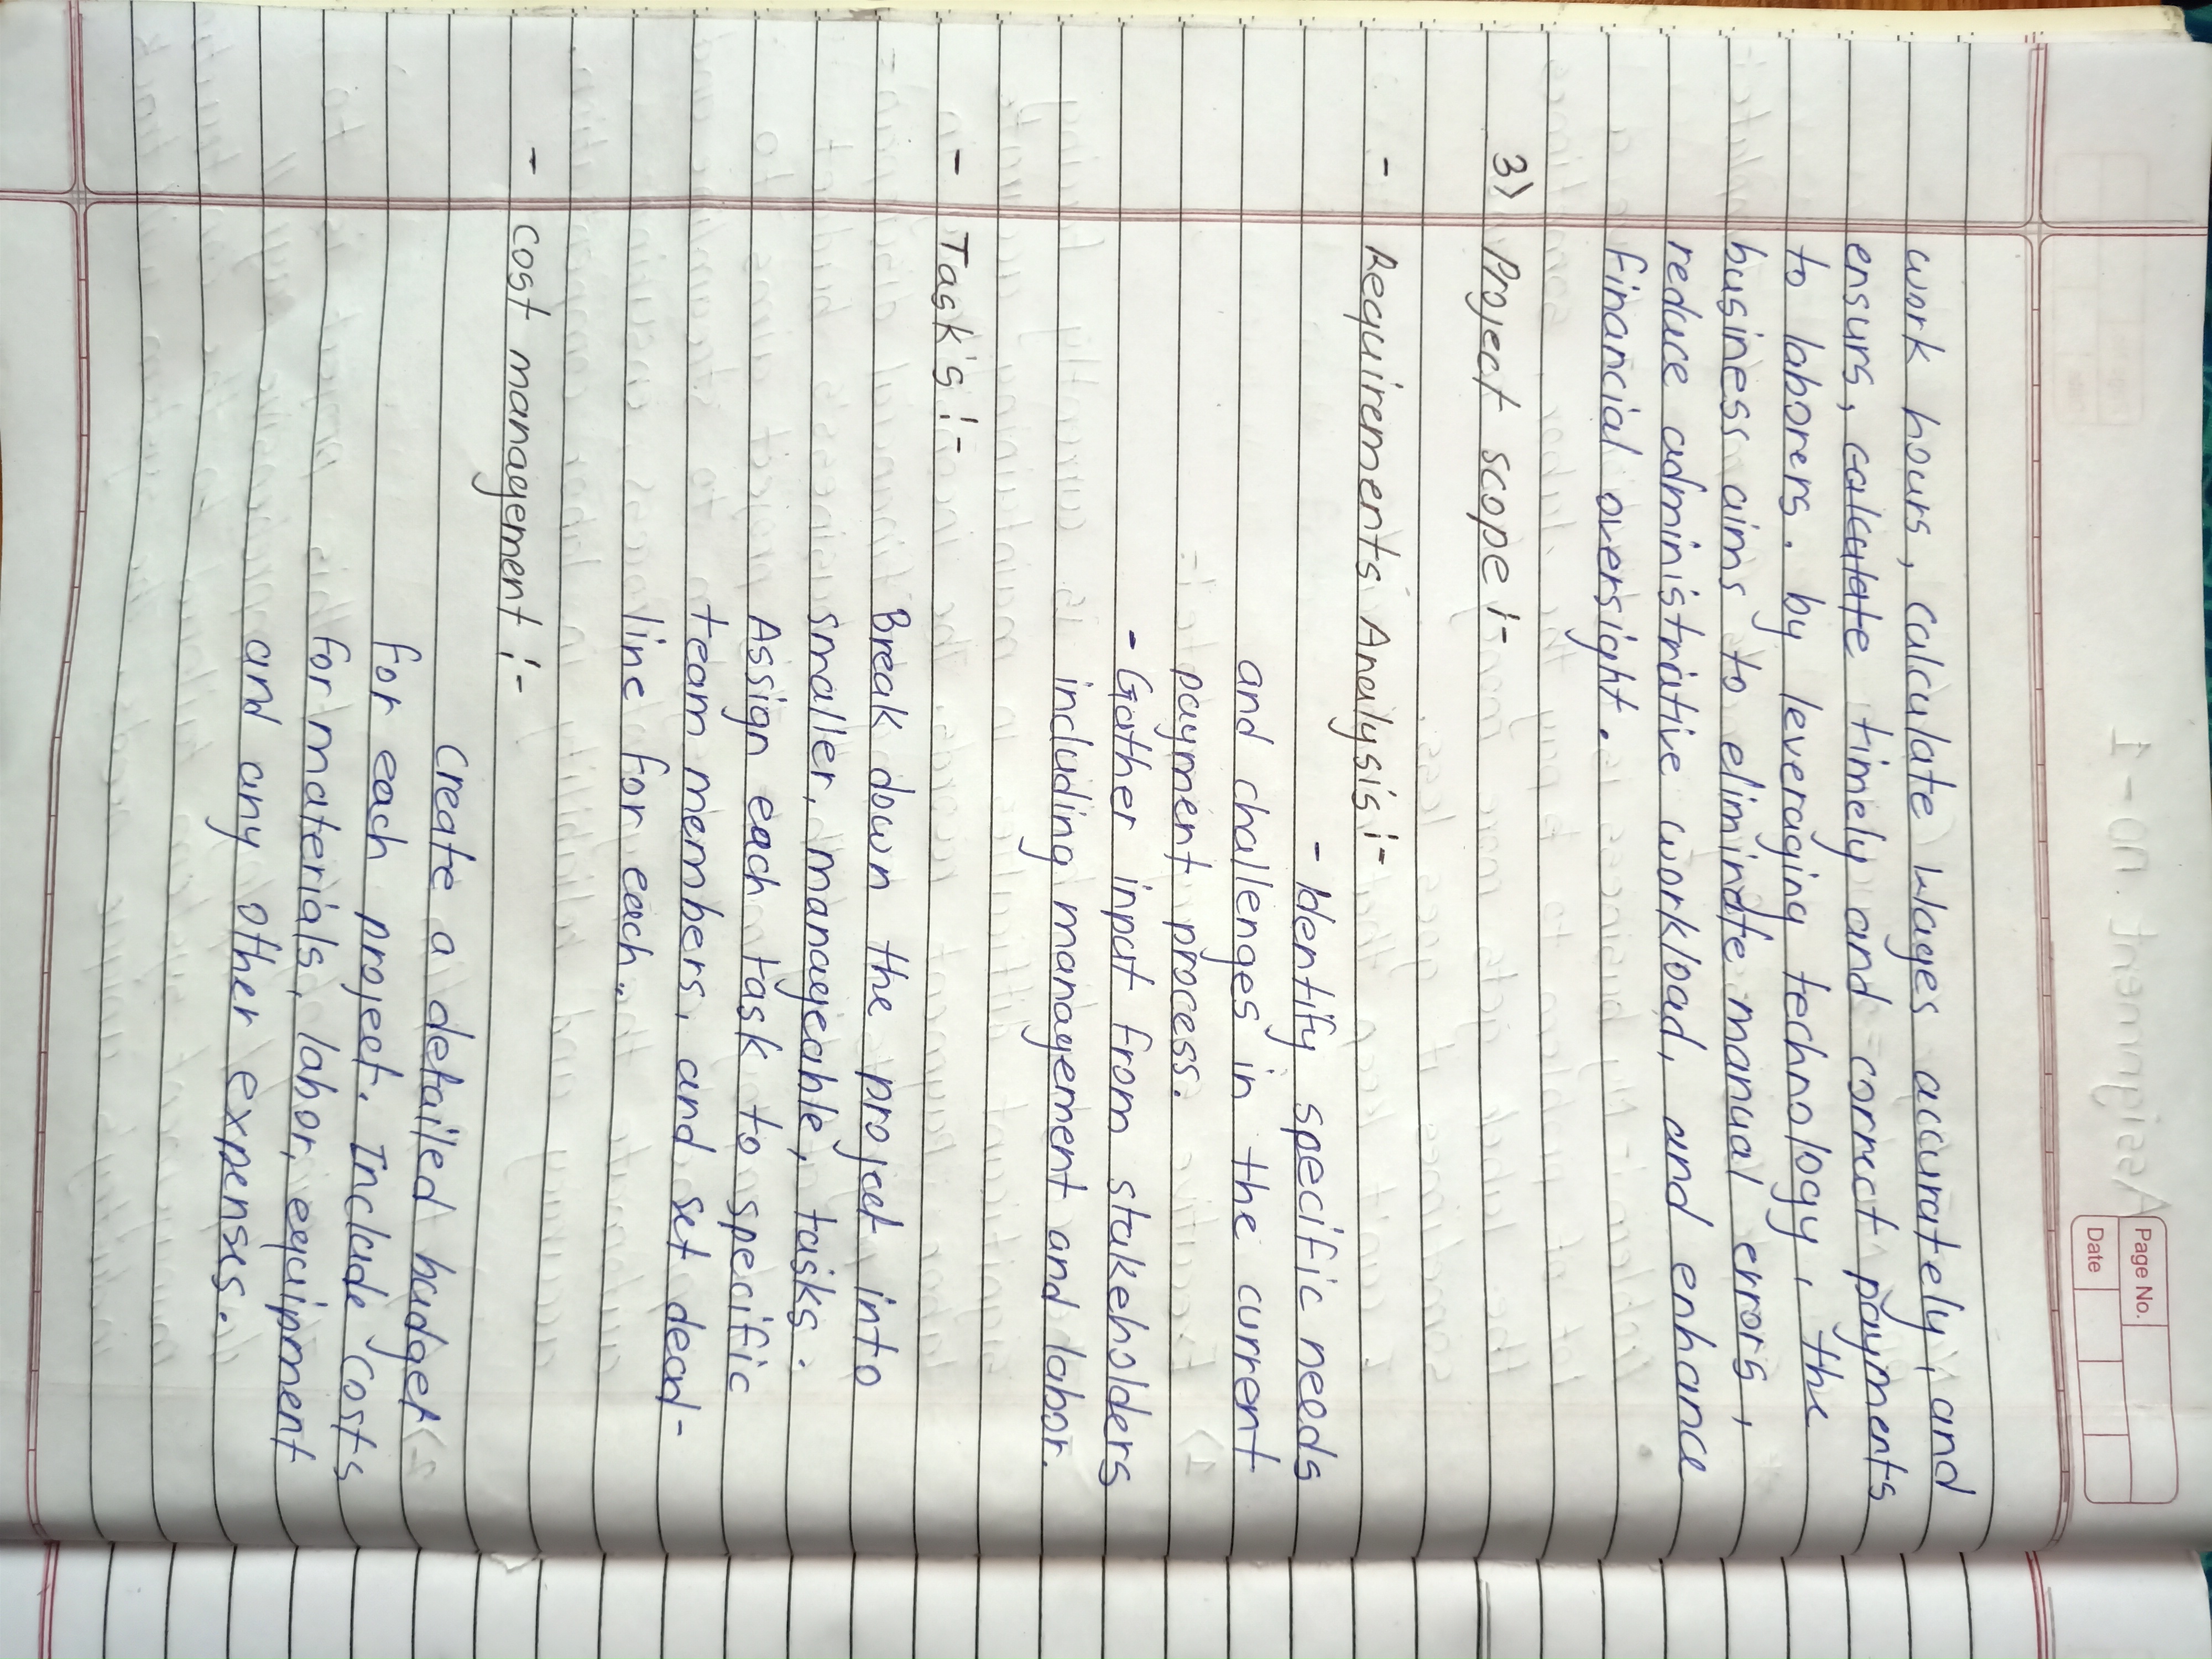 Page No.
Date
work hours, calculate wages accurately, and
ensurs, calculate timely and correct payments
to laborers. by leveraging technology, the
business aims to eliminate manual errors,
reduce administrative workload, and enhance
financial oversight.
3) Project scope :-
- Requirements Analysis :-
- Identify specific needs
and challenges in the current
payment process.
- Gather input from stakeholders
including management and labor.
- Task's :-
Break down the project into
smaller, manageable, tasks.
Assign each task to specific
team members, and set dead-
line for each..
- cost management :-
create a detailed budget
for each project. Include costs
for materials, labor, equipment
and any other expenses.